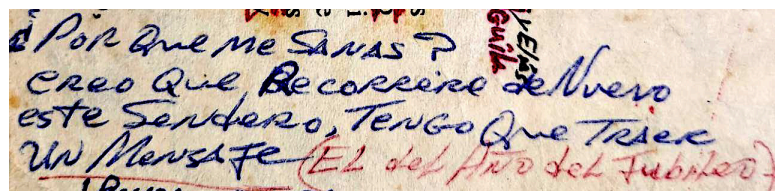 ¿POR Que Me SANAS?
creo Que Recorrere de Nuevo
este Sendero, TENGO Que TRAER
UN MENSAJE (EL del AÑO del Jubileo)